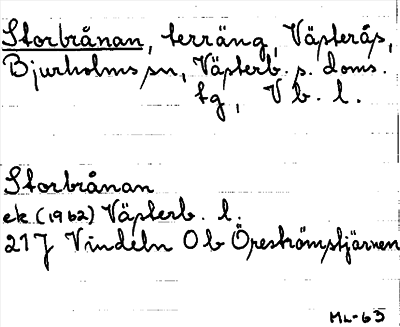 Storbrånan, terräng, Västerås,
Bjurholms sn, Västerb. s. doms.
tg, Vb. l.
Storbrånan
ek (1962) Västerb. l.
21J Vindeln 0b Öreströmstjärnen
ML-65